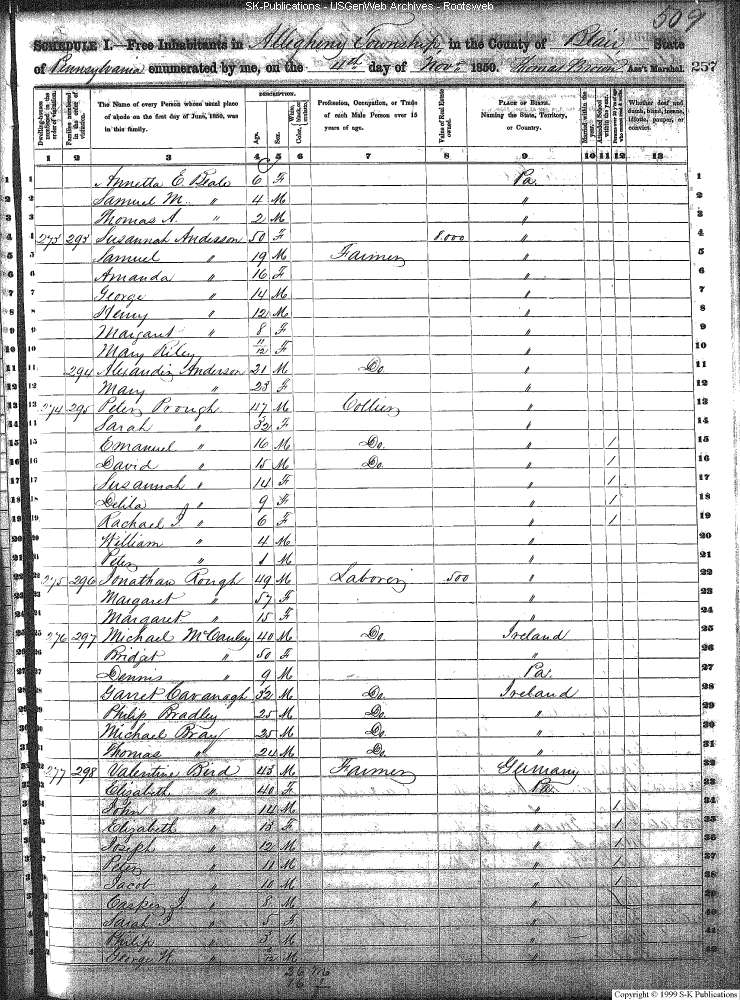 SK-Publications - USGenWeb Archives - Rootsweb
509
SCHEDULE I.—Free Inhabitants in Allegheny Township in the County of Blair State
of Pennsylvania enumerated by me, on the 4th day of Nov. 1850. Thomas Brown Ass't Marshal. 257
Dwelling-houses numbered in the order of visitation.
Families numbered in the order of visitation.
The Name of every Person whose usual place of abode on the first day of June, 1850, was in this family.
DESCRIPTION.
Age.
Sex.
Color, White, black, or mulatto.
Profession, Occupation, or Trade of each Male Person over 15 years of age.
Value of Real Estate owned.
PLACE OF BIRTH. Naming the State, Territory, or Country.
Married within the year.
Attended School within the year.
Persons over 20 y'rs of age who cannot read & write.
Whether deaf and dumb, blind, insane, idiotic, pauper, or convict.
1 2 3 4 5 6 7 8 9 10 11 12 13
1 Annetta E. Beale 6 F Pa. 1
2 Samuel M. " 4 M " 2
3 Thomas A. " 2 M " 3
4 273 293 Susannah Anderson 50 F 8.000 " 4
5 Samuel " 19 M Farmer " 5
6 Amanda " 16 F " 6
7 George " 14 M " 7
8 Henry " 12 M " 8
9 Margaret " 8 F " 9
10 Mary Riley 11/12 F " 10
11 294 Alexander Anderson 21 M Do. " 11
12 Mary " 23 F " 12
13 274 295 Peter Prough 47 M Collier " 13
14 Sarah " 32 F " 14
15 Emanuel " 16 M Do. " 1 15
16 David " 15 M Do. " 1 16
17 Susannah " 14 F " 1 17
18 Delila " 9 F " 1 18
19 Rachael J " 6 F " 1 19
20 William " 4 M " 20
21 Peter " 1 M " 21
22 275 296 Jonathan Rough 49 M Laborer 500 " 22
23 Margaret " 57 F " 23
24 Margaret " 15 F " 24
25 276 297 Michael McCauley 40 M Do. Ireland 25
26 Bridget " 50 F " 26
27 Dennis " 9 M Pa. 27
28 Garret Cavanagh 32 M Do. Ireland 28
29 Philip Bradley 25 M Do. " 29
30 Michael Bray 25 M Do. " 30
31 Thomas " 24 M Do. " 31
32 277 298 Valentine Bird 43 M Farmer Germany 32
33 Elizabeth " 40 F Pa. 33
34 John " 14 M " 1 34
35 Elizabeth " 13 F " 1 35
36 Joseph " 12 M " 1 36
37 Peter " 11 M " 1 37
38 Jacob " 10 M " 1 38
39 Casper J " 8 M " 39
40 Sarah J. " 5 F " 40
41 Philip " 3 M " 41
42 George W. " M " 42
Copyright © 1999 S-K Publications